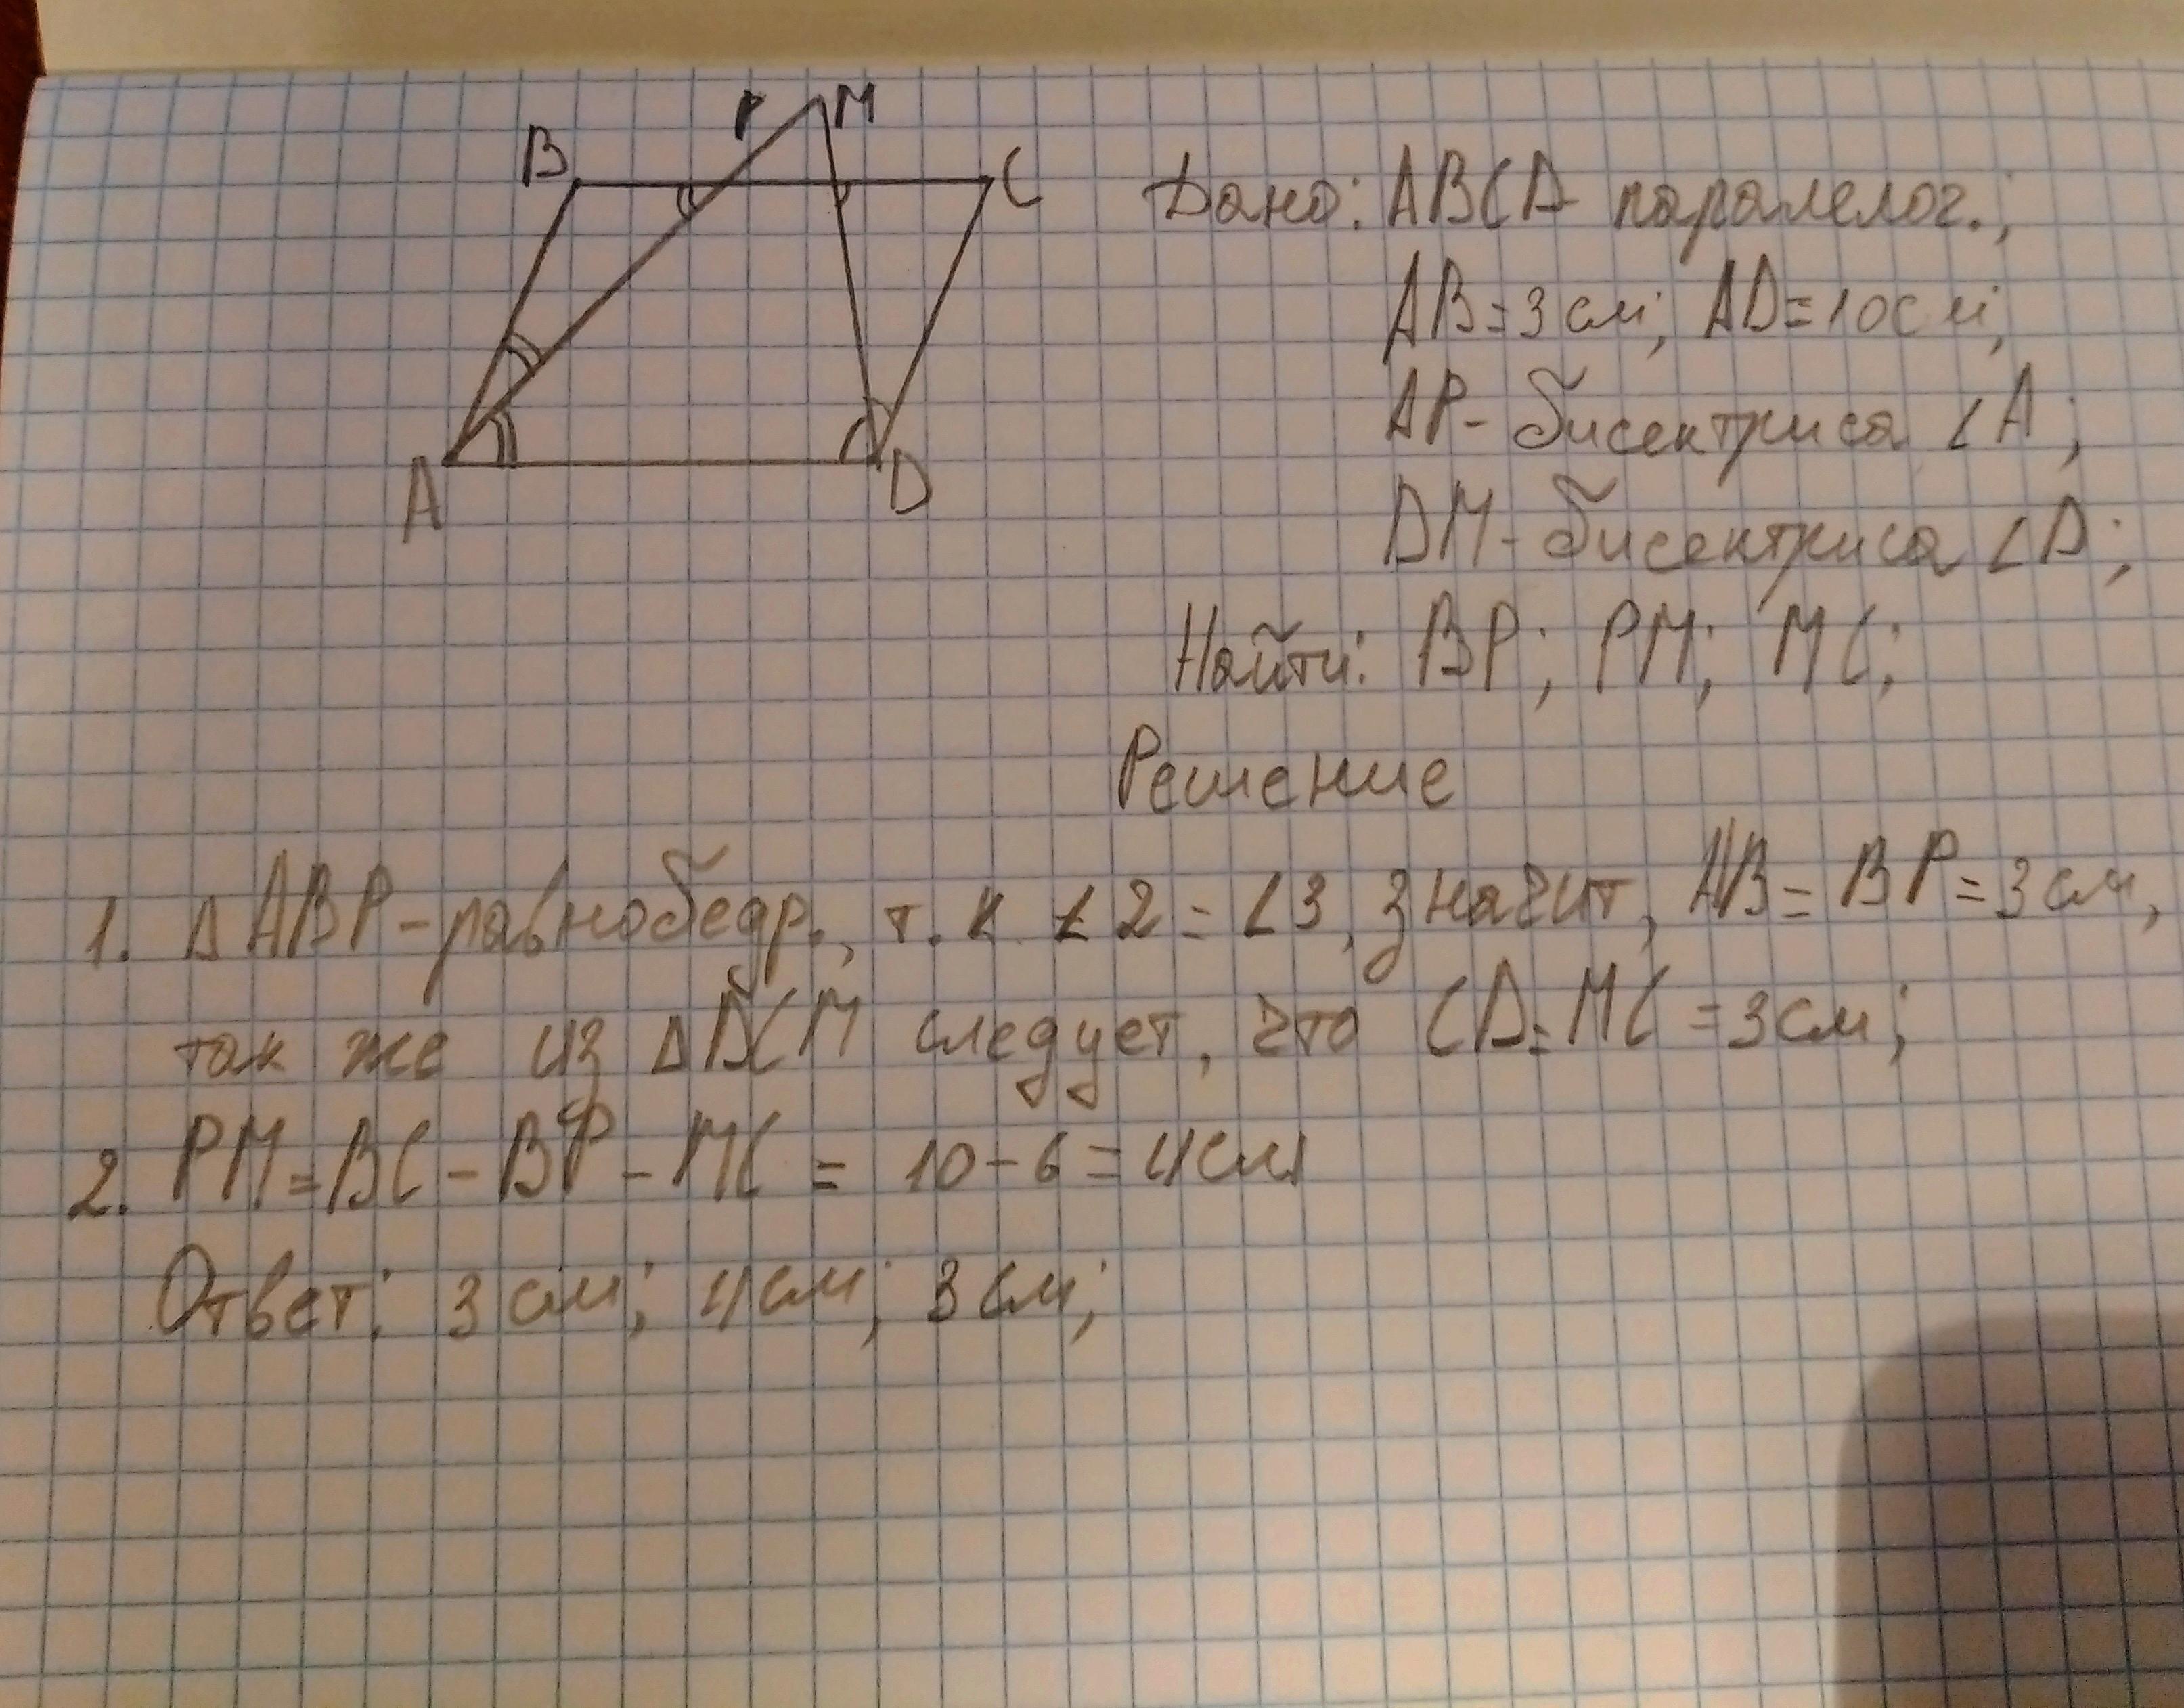 B P M C
A D
Дано: ABCD паралелог.;
AB=3см; AD=10см;
AP- бисектриса ∠A;
DM- бисектриса ∠D;
Найти: BP; PM; MC;
Решение
1. Δ ABP-равнобедр., т.к ∠2=∠3, значит, AB=BP=3см,
так же из ΔDCM следует, что CD=MC=3см;
2. PM=BC-BP-MC = 10-6=4см
Ответ: 3см; 4см; 3см;